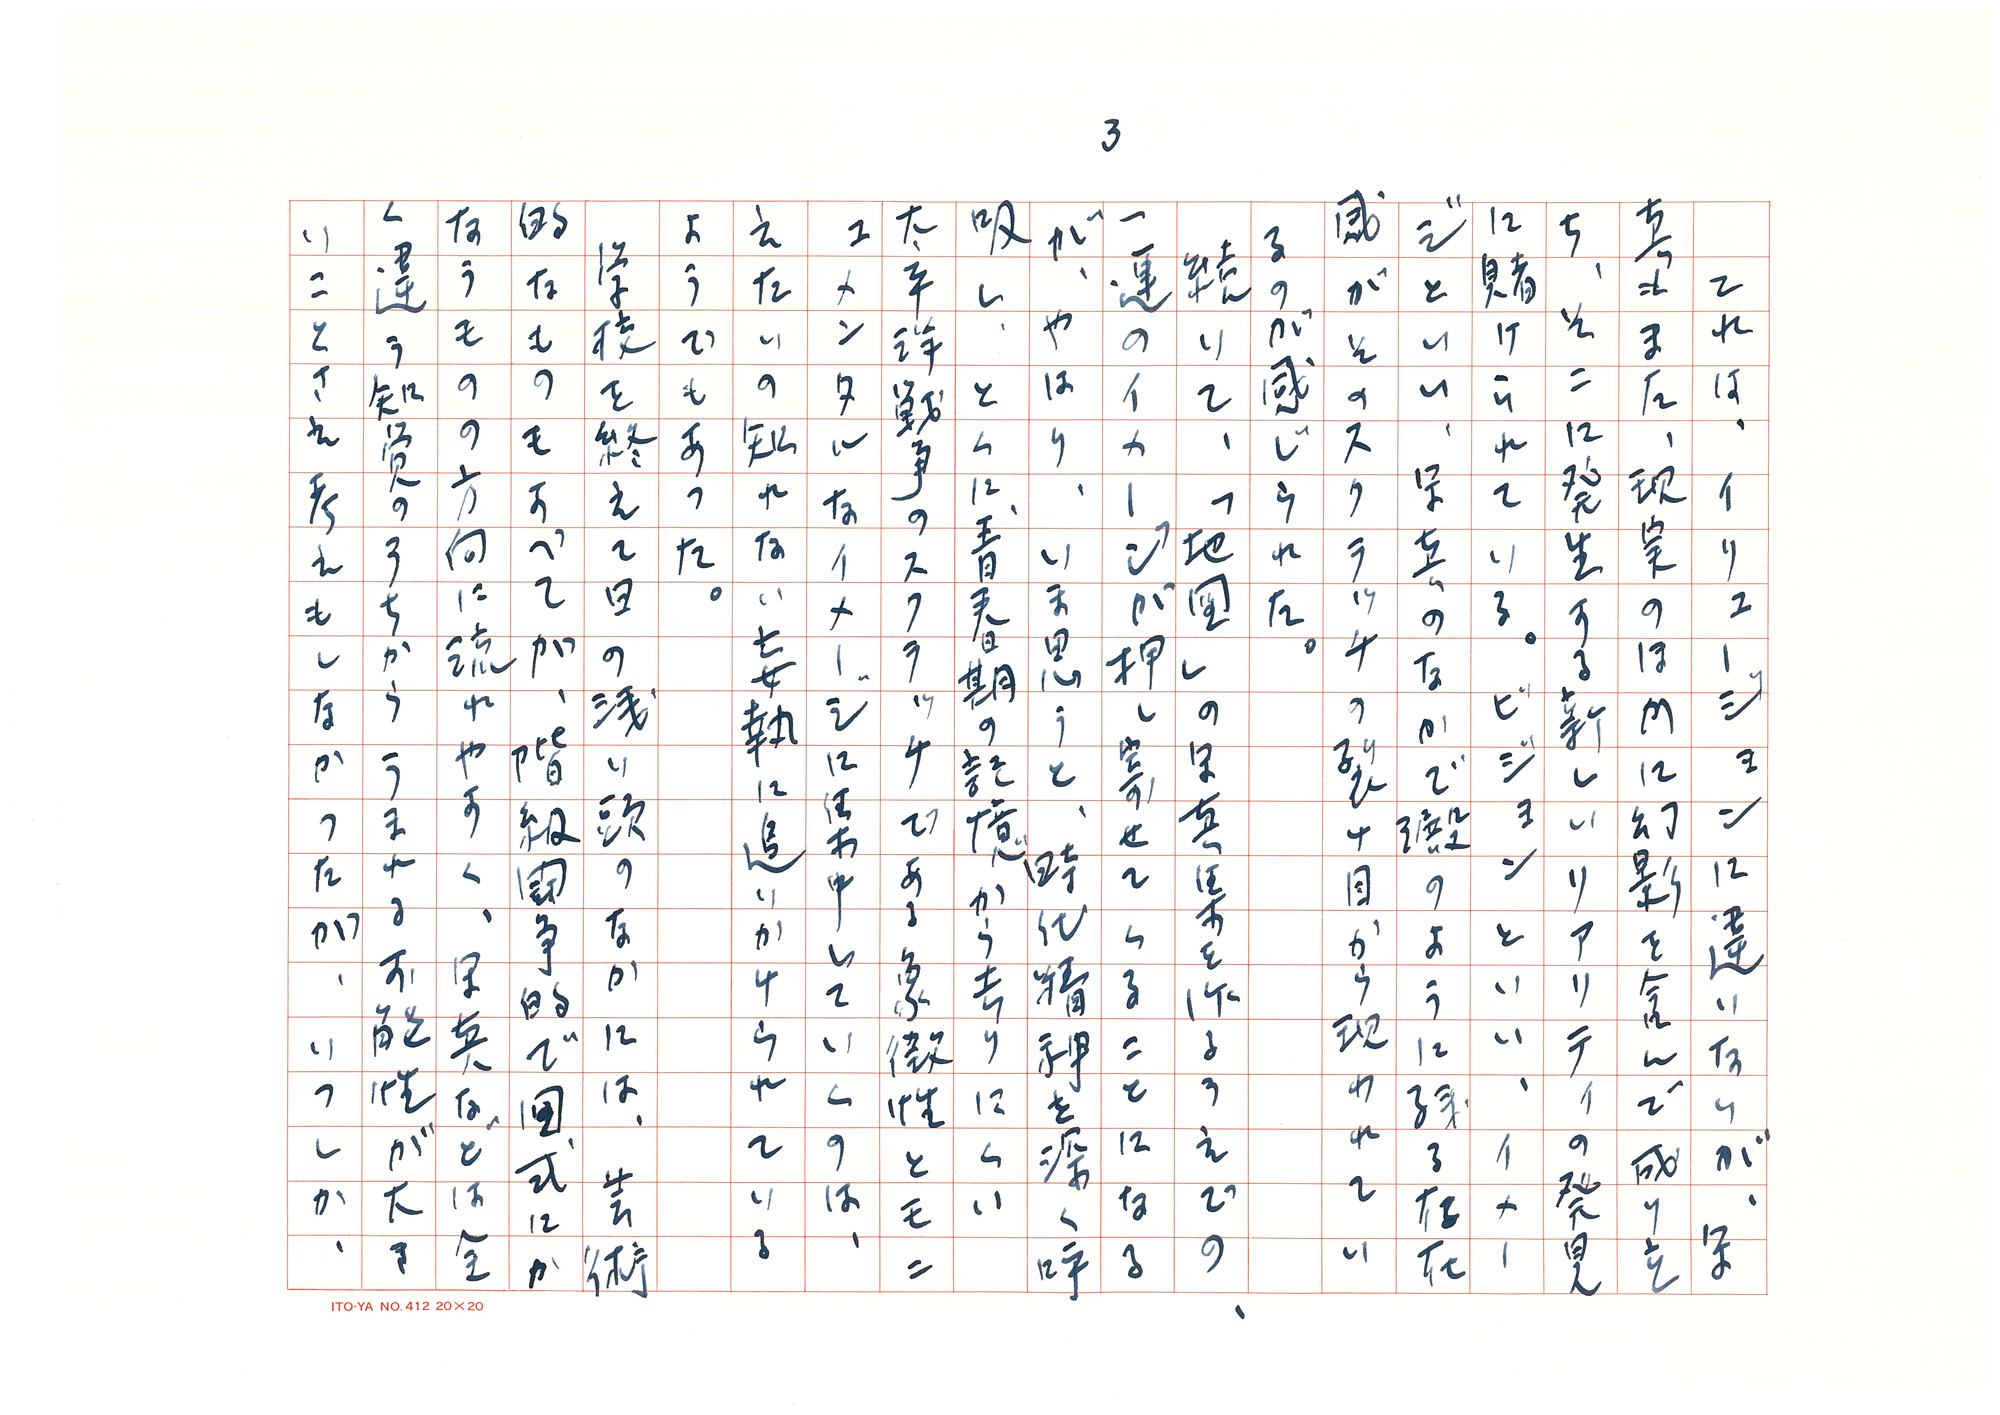 3
それは、イリュージョンに違いないが、写
真もまた、現実のほかに幻影を含んで成り立
ち、そこに発生する新しいリアリティの発見
に賭けられている。ビジョンといい、イメー
ジといい、写真のなかで礎のように残る存在
感がそのスクラッチの裂け目から現われてい
るのが感じられた。
続いて、「地図」の写真集を作るうえでの、
一連のイメージが押し寄せてくることになる
が、やはり、いま思うと、時代精神を深く呼
吸し、とくに、青春期の記憶から去りにくい
太平洋戦争のスクラッチである象徴性とモニ
ュメンタルなイメージに集中していくのは、
えたいの知れない妄執に追いかけられている
ようでもあった。
学校を終えて日の浅い頭のなかには、芸術
的なものもすべてが、階級闘争的で図式にか
なうものの方向に流れやすく、写真などは全
く違う知覚のうちからうまれる可能性が大き
いことさえ考えもしなかったが、いつしか、
ITO-YA NO.412 20×20